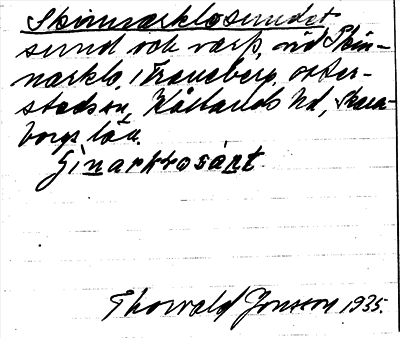 Skinnarklosundet
sund och varp, vid Skin-
narklo, i Traneberg, Otter-
stads sn, Kållands hd, Skara-
borgs län.
Ginarkrosánt.
Thorvald Jonsson 1935.